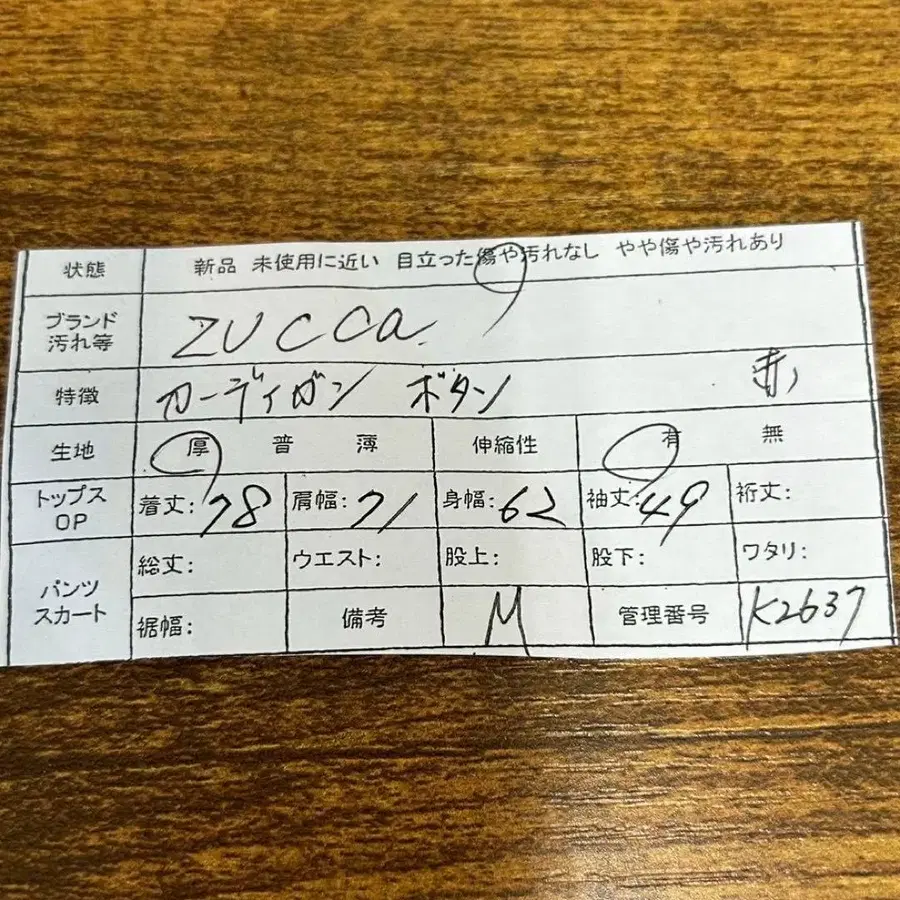 状態 新品 未使用に近い 目立った傷や汚れなし やや傷や汚れあり
ブランド
汚れ等 ZUCCa.
特徴 カーディガン ボタン 赤
生地 厚 普 薄 伸縮性 有 無
トップス
OP 着丈:78 肩幅:71 身幅:62 袖丈:49 裄丈:
パンツ
スカート 総丈: ウエスト: 股上: 股下: ワタリ:
裾幅: 備考 M 管理番号 K2637